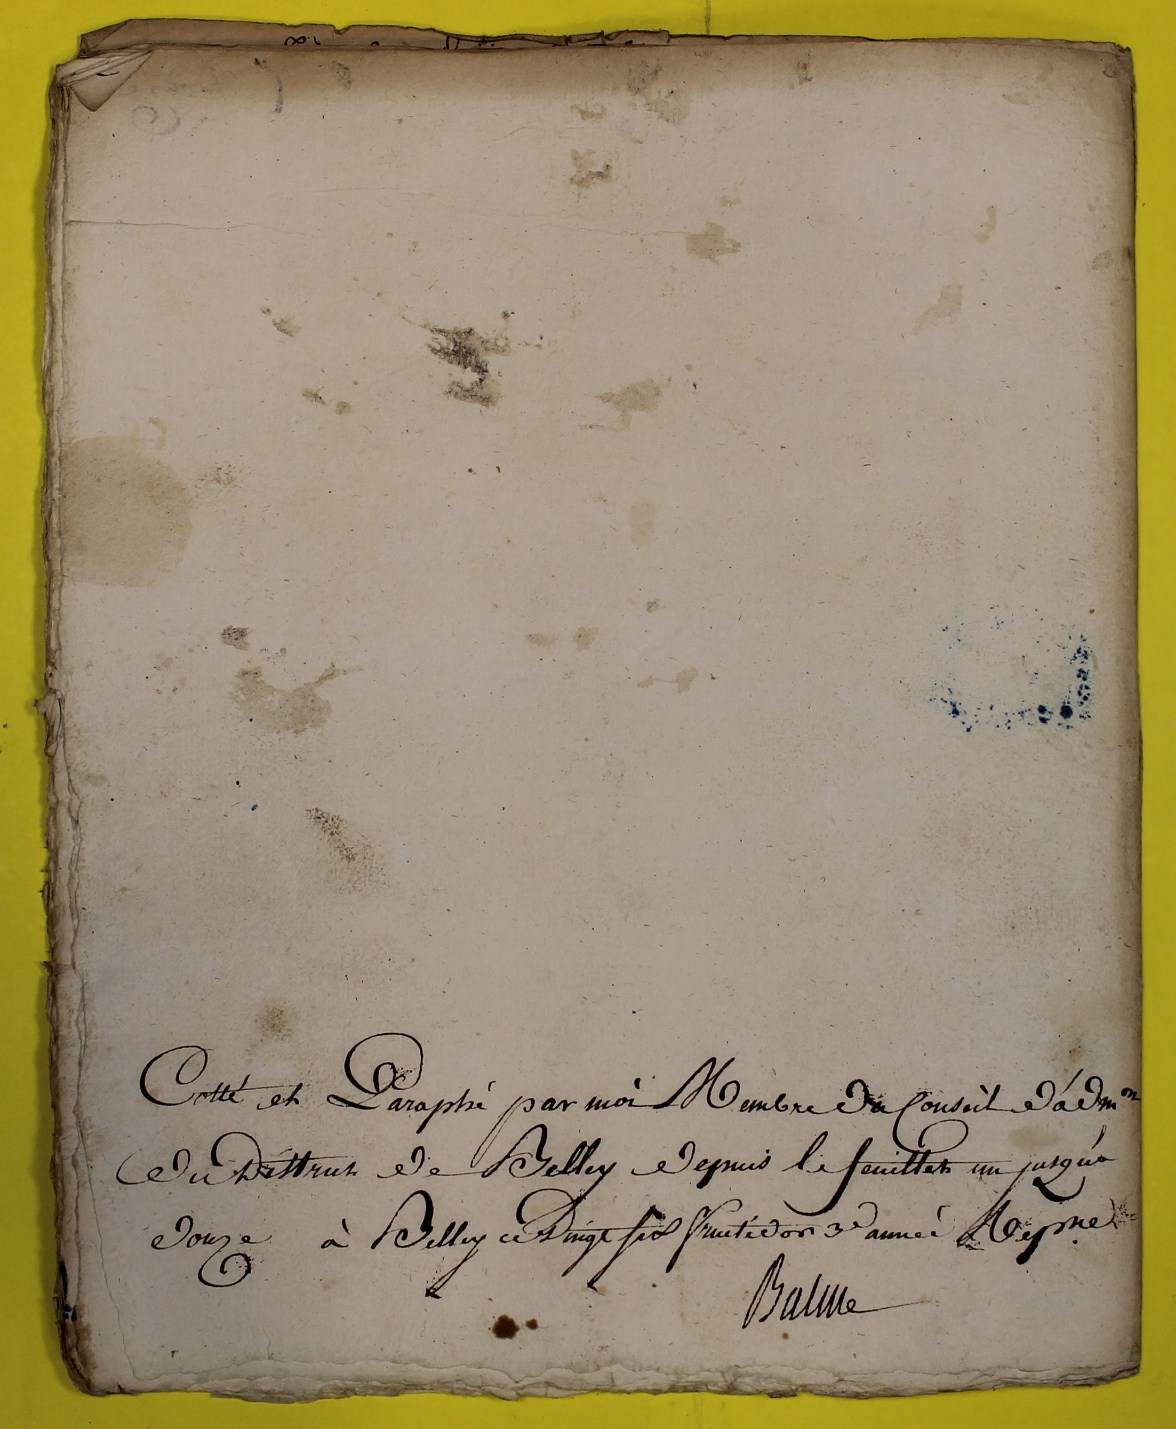 Cotté et Paraphé par moi Membre du Conseil d'adm.on
du District de Belley depuis le feuillet un jusqu'a
douze à Belley ce vingt six fructidor 3e année Rep.ne
Balme